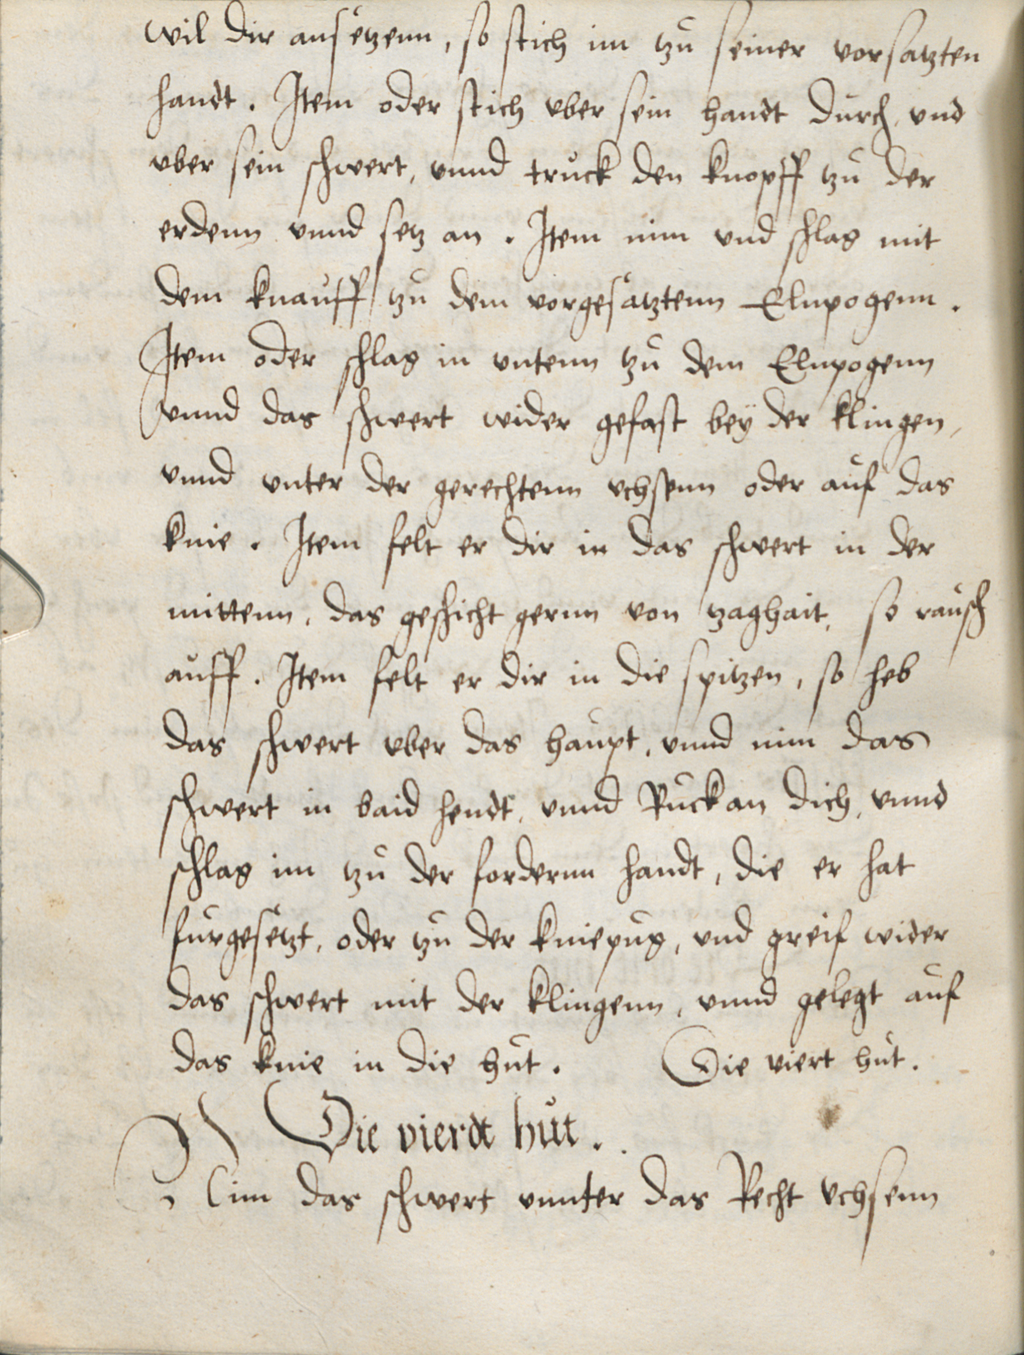 wil dir ansetzenn, so stich im tzu seiner vorsatzten
handt. Item oder stich vber sein handt durch, vnd
vber sein schwert, vnnd truck den knopff tzu der
erdenn vnnd setz an. Item nim vnd schlag mit
dem knauff tzu dem vorgesatztenn Elnpogenn.
Item oder schlag in vntenn tzu dem Elnpogenn
vnnd das schwert wider gefast bey der klingen,
vnnd vnter der gerechtenn vchsenn oder auf das
knie. Item felt er dir in das schwert in der
mittenn, das geschicht gernn von tzaghait, so rausch
auff. Item felt er dir in die spitzen, so heb
das schwert vber das haupt, vnnd nim das
schwert in baid hendt, vnnd Ruck an dich, vnnd
schlag im tzu der fordernn handt, die er hat
furgesetzt, oder tzu der kniepug, vnd greif wider
das schwert mit der klingenn, vnnd gelegt auf
das knie in die hut. Die viert hut.
Die vierdt hut.
Nim das schwert vnnter das Recht vchsenn